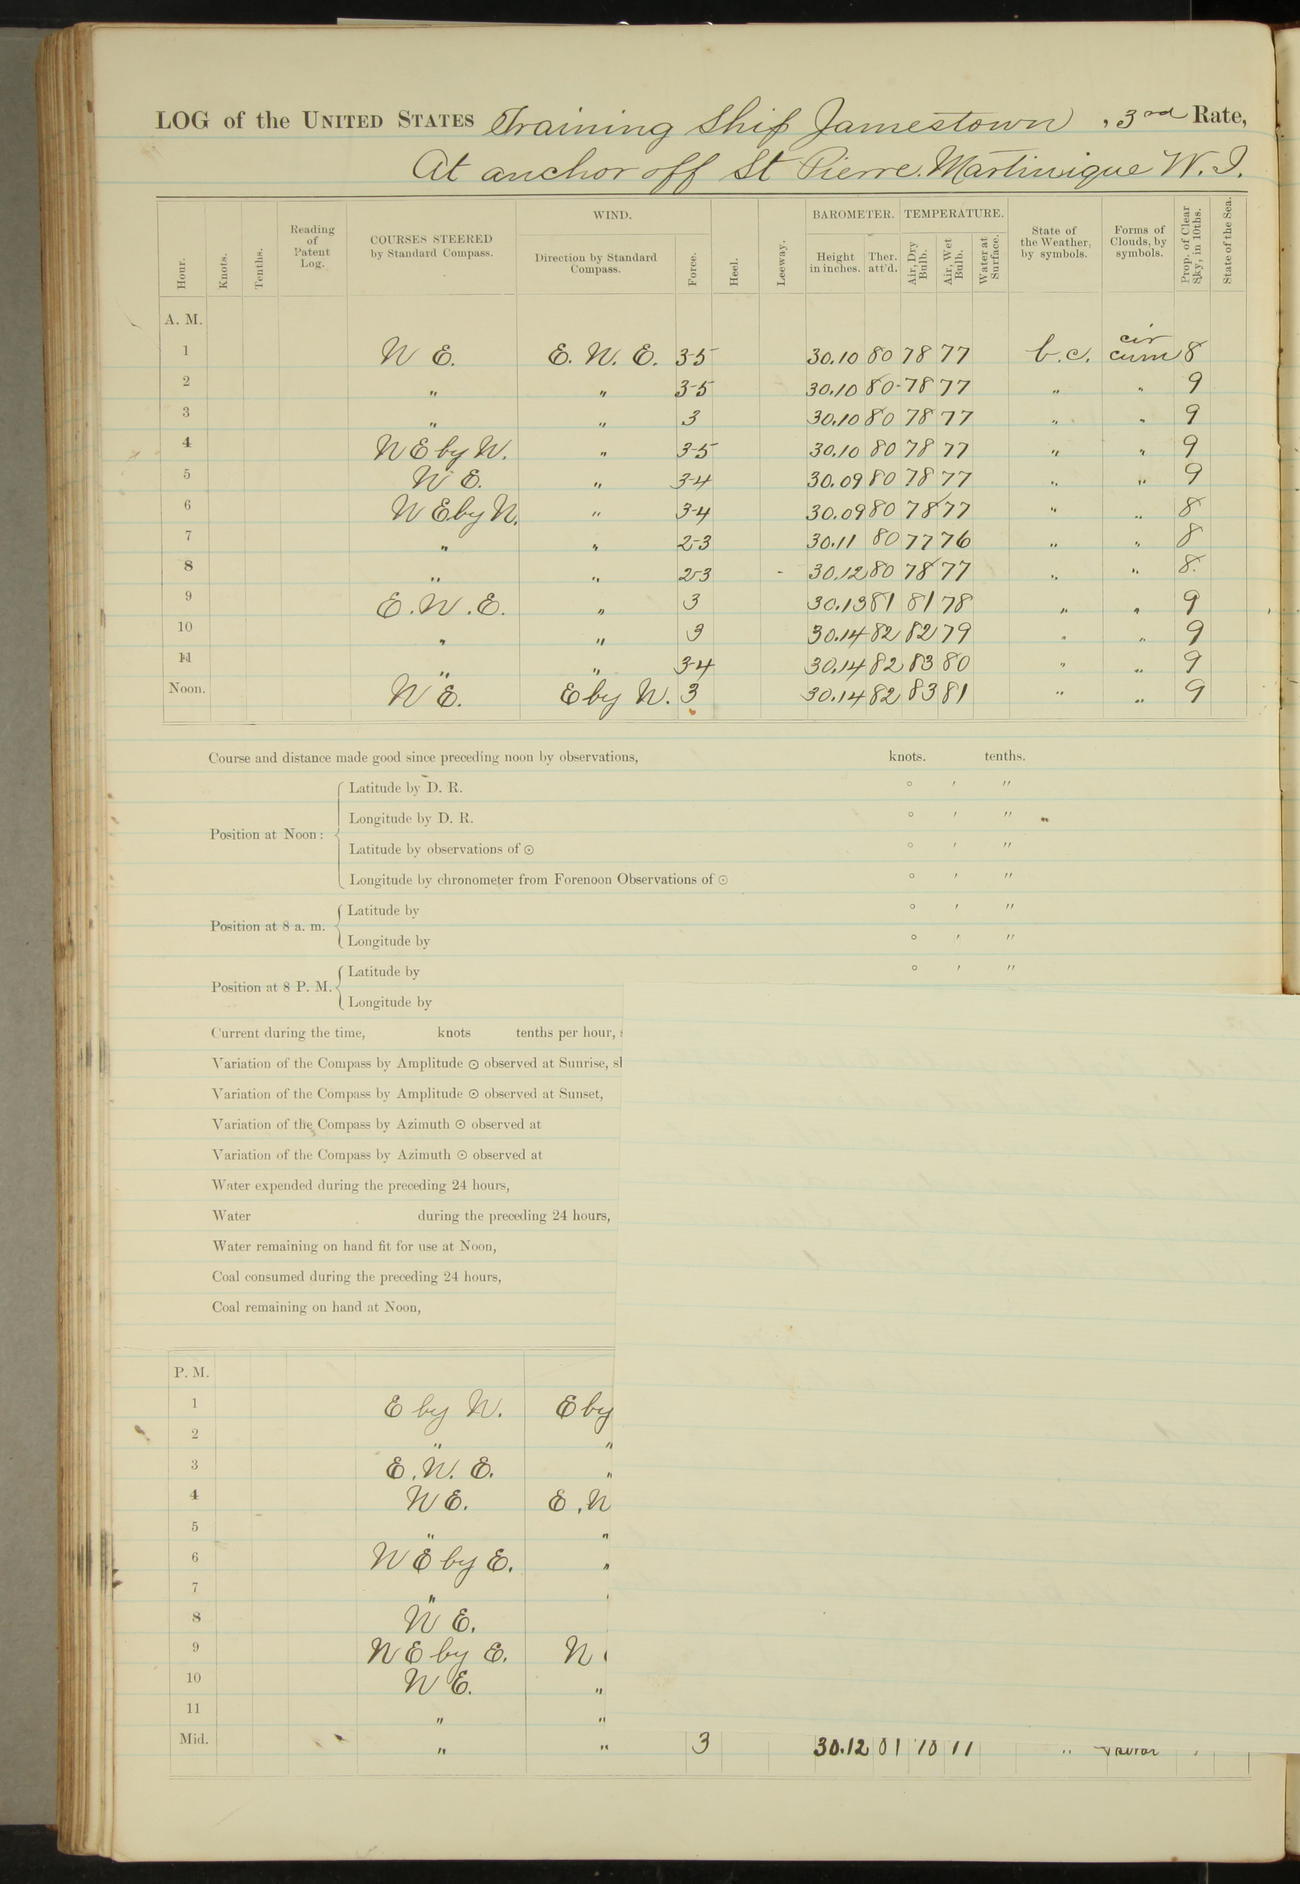 LOG of the UNITED STATES Training Ship Jamestown, 3rd Rate,
At anchor off St Pierre. Martinique W. I.
WIND. BAROMETER. TEMPERATURE.
Hour. Knots. Tenths. Reading of Patent Log. COURSES STEERED by Standard Compass. Direction by Standard Compass. Force. Heel. Leeway. Height in inches. Ther. att'd. Air, Dry Bulb. Air, Wet Bulb. Water at Surface. State of the Weather, by symbols. Forms of Clouds, by symbols. Prop. of Clear Sky, in 10ths. State of the Sea.
A. M.
1 N E. E. N. E. 3-5 30.10 80 78 77 b.c. cir cum 8
2 " " 3-5 30.10 80 78 77 " " 9
3 " " 3 30.10 80 78 77 " " 9
4 N E by N. " 3-5 30.10 80 78 77 " " 9
5 N E. " 3-4 30.09 80 78 77 " " 9
6 N E by N. " 3-4 30.09 80 78 77 " " 8
7 " " 2-3 30.11 80 77 76 " " 8
8 " " 2-3 30.12 80 78 77 " " 8.
9 E. N. E. " 3 30.13 81 81 78 " " 9
10 " " 3 30.14 82 82 79 " " 9
11 " " 3-4 30.14 82 83 80 " " 9
Noon. N E. E by N. 3 30.14 82 83 81 " " 9
Course and distance made good since preceding noon by observations, knots. tenths.
Position at Noon:
Latitude by D. R. ° ′ ″
Longitude by D. R. ° ′ ″
Latitude by observations of ☉ ° ′ ″
Longitude by chronometer from Forenoon Observations of ☉ ° ′ ″
Position at 8 a. m.
Latitude by ° ′ ″
Longitude by ° ′ ″
Position at 8 P. M.
Latitude by ° ′ ″
Longitude by
Current during the time, knots tenths per hour,
Variation of the Compass by Amplitude ☉ observed at Sunrise,
Variation of the Compass by Amplitude ☉ observed at Sunset,
Variation of the Compass by Azimuth ☉ observed at
Variation of the Compass by Azimuth ☉ observed at
Water expended during the preceding 24 hours,
Water during the preceding 24 hours,
Water remaining on hand fit for use at Noon,
Coal consumed during the preceding 24 hours,
Coal remaining on hand at Noon,
P. M.
1 E by N. E by
2 " "
3 E. N. E. "
4 N E. E. N
5 " "
6 N E by E. "
7 "
8 N E.
9 N E by E. N
10 N E. "
11 " "
Mid. " " 3 30.12